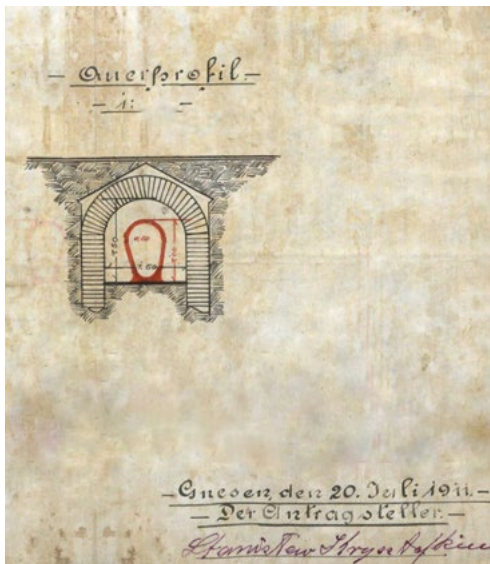 — Querprofil. —
— 1: —
1.50
— Gnesen, den 20. Juli 1911. —
— Der Antragsteller. —
Stanislaw